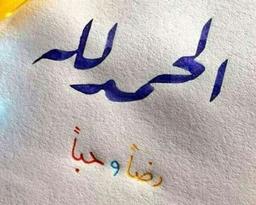 الحمد لله
رضاً و حباً